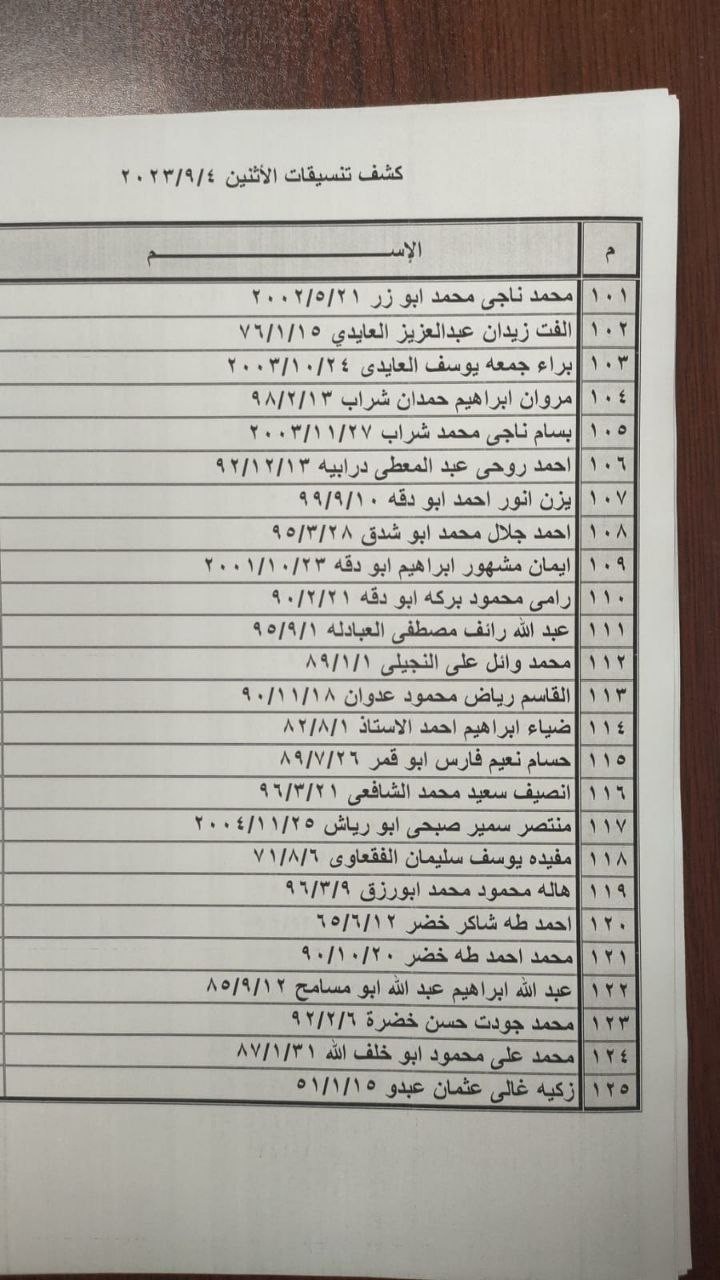 كشف تنسيقات الأثنين ٢٠٢٣/٩/٤
م الإســـــــــــم
١٠١ محمد ناجى محمد ابو زر ٢٠٠٢/٥/٢١
١٠٢ الفت زيدان عبدالعزيز العايدي ٧٦/١/١٥
١٠٣ براء جمعه يوسف العايدى ٢٠٠٣/١٠/٢٤
١٠٤ مروان ابراهيم حمدان شراب ٩٨/٢/١٣
١٠٥ بسام ناجى محمد شراب ٢٠٠٣/١١/٢٧
١٠٦ احمد روحى عبد المعطى درابيه ٩٢/١٢/١٣
١٠٧ يزن انور احمد ابو دقه ٩٩/٩/١٠
١٠٨ احمد جلال محمد ابو شدق ٩٥/٣/٢٨
١٠٩ ايمان مشهور ابراهيم ابو دقه ٢٠٠١/١٠/٢٣
١١٠ رامى محمود بركه ابو دقه ٩٠/٢/٢١
١١١ عبد الله رائف مصطفى العبادله ٩٥/٩/١
١١٢ محمد وائل على النجيلى ٨٩/١/١
١١٣ القاسم رياض محمود عدوان ٩٠/١١/١٨
١١٤ ضياء ابراهيم احمد الاستاذ ٨٢/٨/١
١١٥ حسام نعيم فارس ابو قمر ٨٩/٧/٢٦
١١٦ انصيف سعيد محمد الشافعى ٩٦/٣/٢١
١١٧ منتصر سمير صبحى ابو رياش ٢٠٠٤/١١/٢٥
١١٨ مفيده يوسف سليمان الفقعاوى ٧١/٨/٦
١١٩ هاله محمود محمد ابورزق ٩٦/٣/٩
١٢٠ احمد طه شاكر خضر ٦٥/٦/١٢
١٢١ محمد احمد طه خضر ٩٠/١٠/٢٠
١٢٢ عبد الله ابراهيم عبد الله ابو مسامح ٨٥/٩/١٢
١٢٣ محمد جودت حسن خضرة ٩٢/٢/٦
١٢٤ محمد على محمود ابو خلف الله ٨٧/١/٣١
١٢٥ زكيه غالى عثمان عبدو ٥١/١/١٥